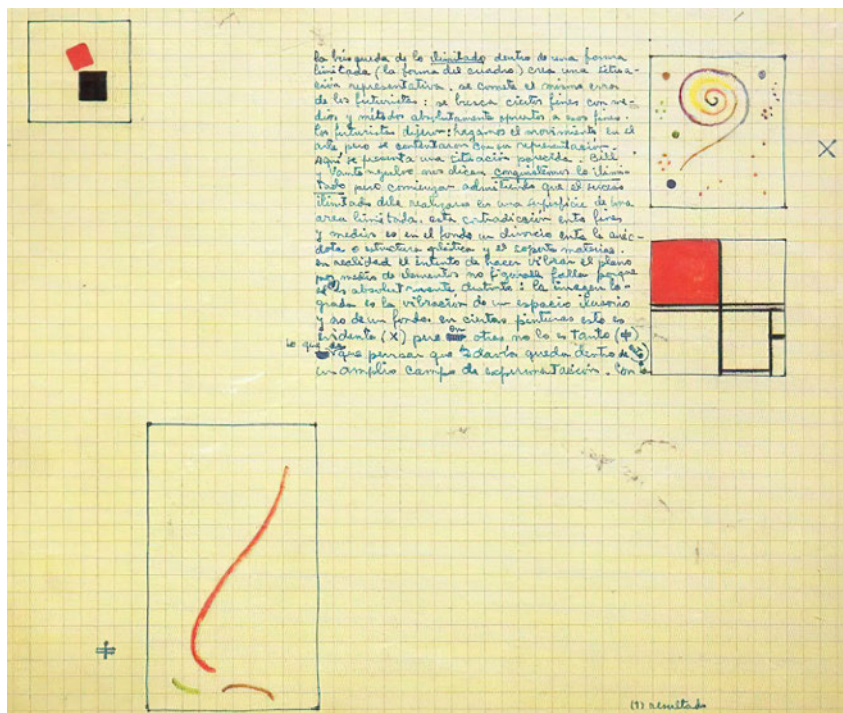 la búsqueda de lo ilimitado dentro de una forma
limitada (la forma del cuadro) crea una situa-
ción representativa. se comete el mismo error
de los futuristas: se busca ciertos fines con me-
dios y métodos absolutamente opuestos a esos fines.
los futuristas dijeron: hagamos el movimiento en el
arte pero se contentaron con su representación.
aquí se presenta una situación parecida. Bill
y Vantongerloo nos dicen conquistemos lo ilimi-
tado pero comienzan admitiendo que el suceso
ilimitado debe realizarse en una superficie de una
area limitada. esta contradicción entre fines
y medios es en el fondo un divorcio entre la anéc-
dota o estructura plástica y el soporte material.
en realidad el intento de hacer vibrar el plano
por medio de elementos no figurales falla porque
es absolutamente distinto: la imagen lo-
grada es la vibración de un espacio ilusorio
y no de un fondo. en ciertas pinturas esto es
evidente (X) pero en otras no lo es tanto (ǂ)
lo que
que pensar que todavía queda dentro de esto
un amplio campo de experimentación. Con
X
ǂ
(1) resultado